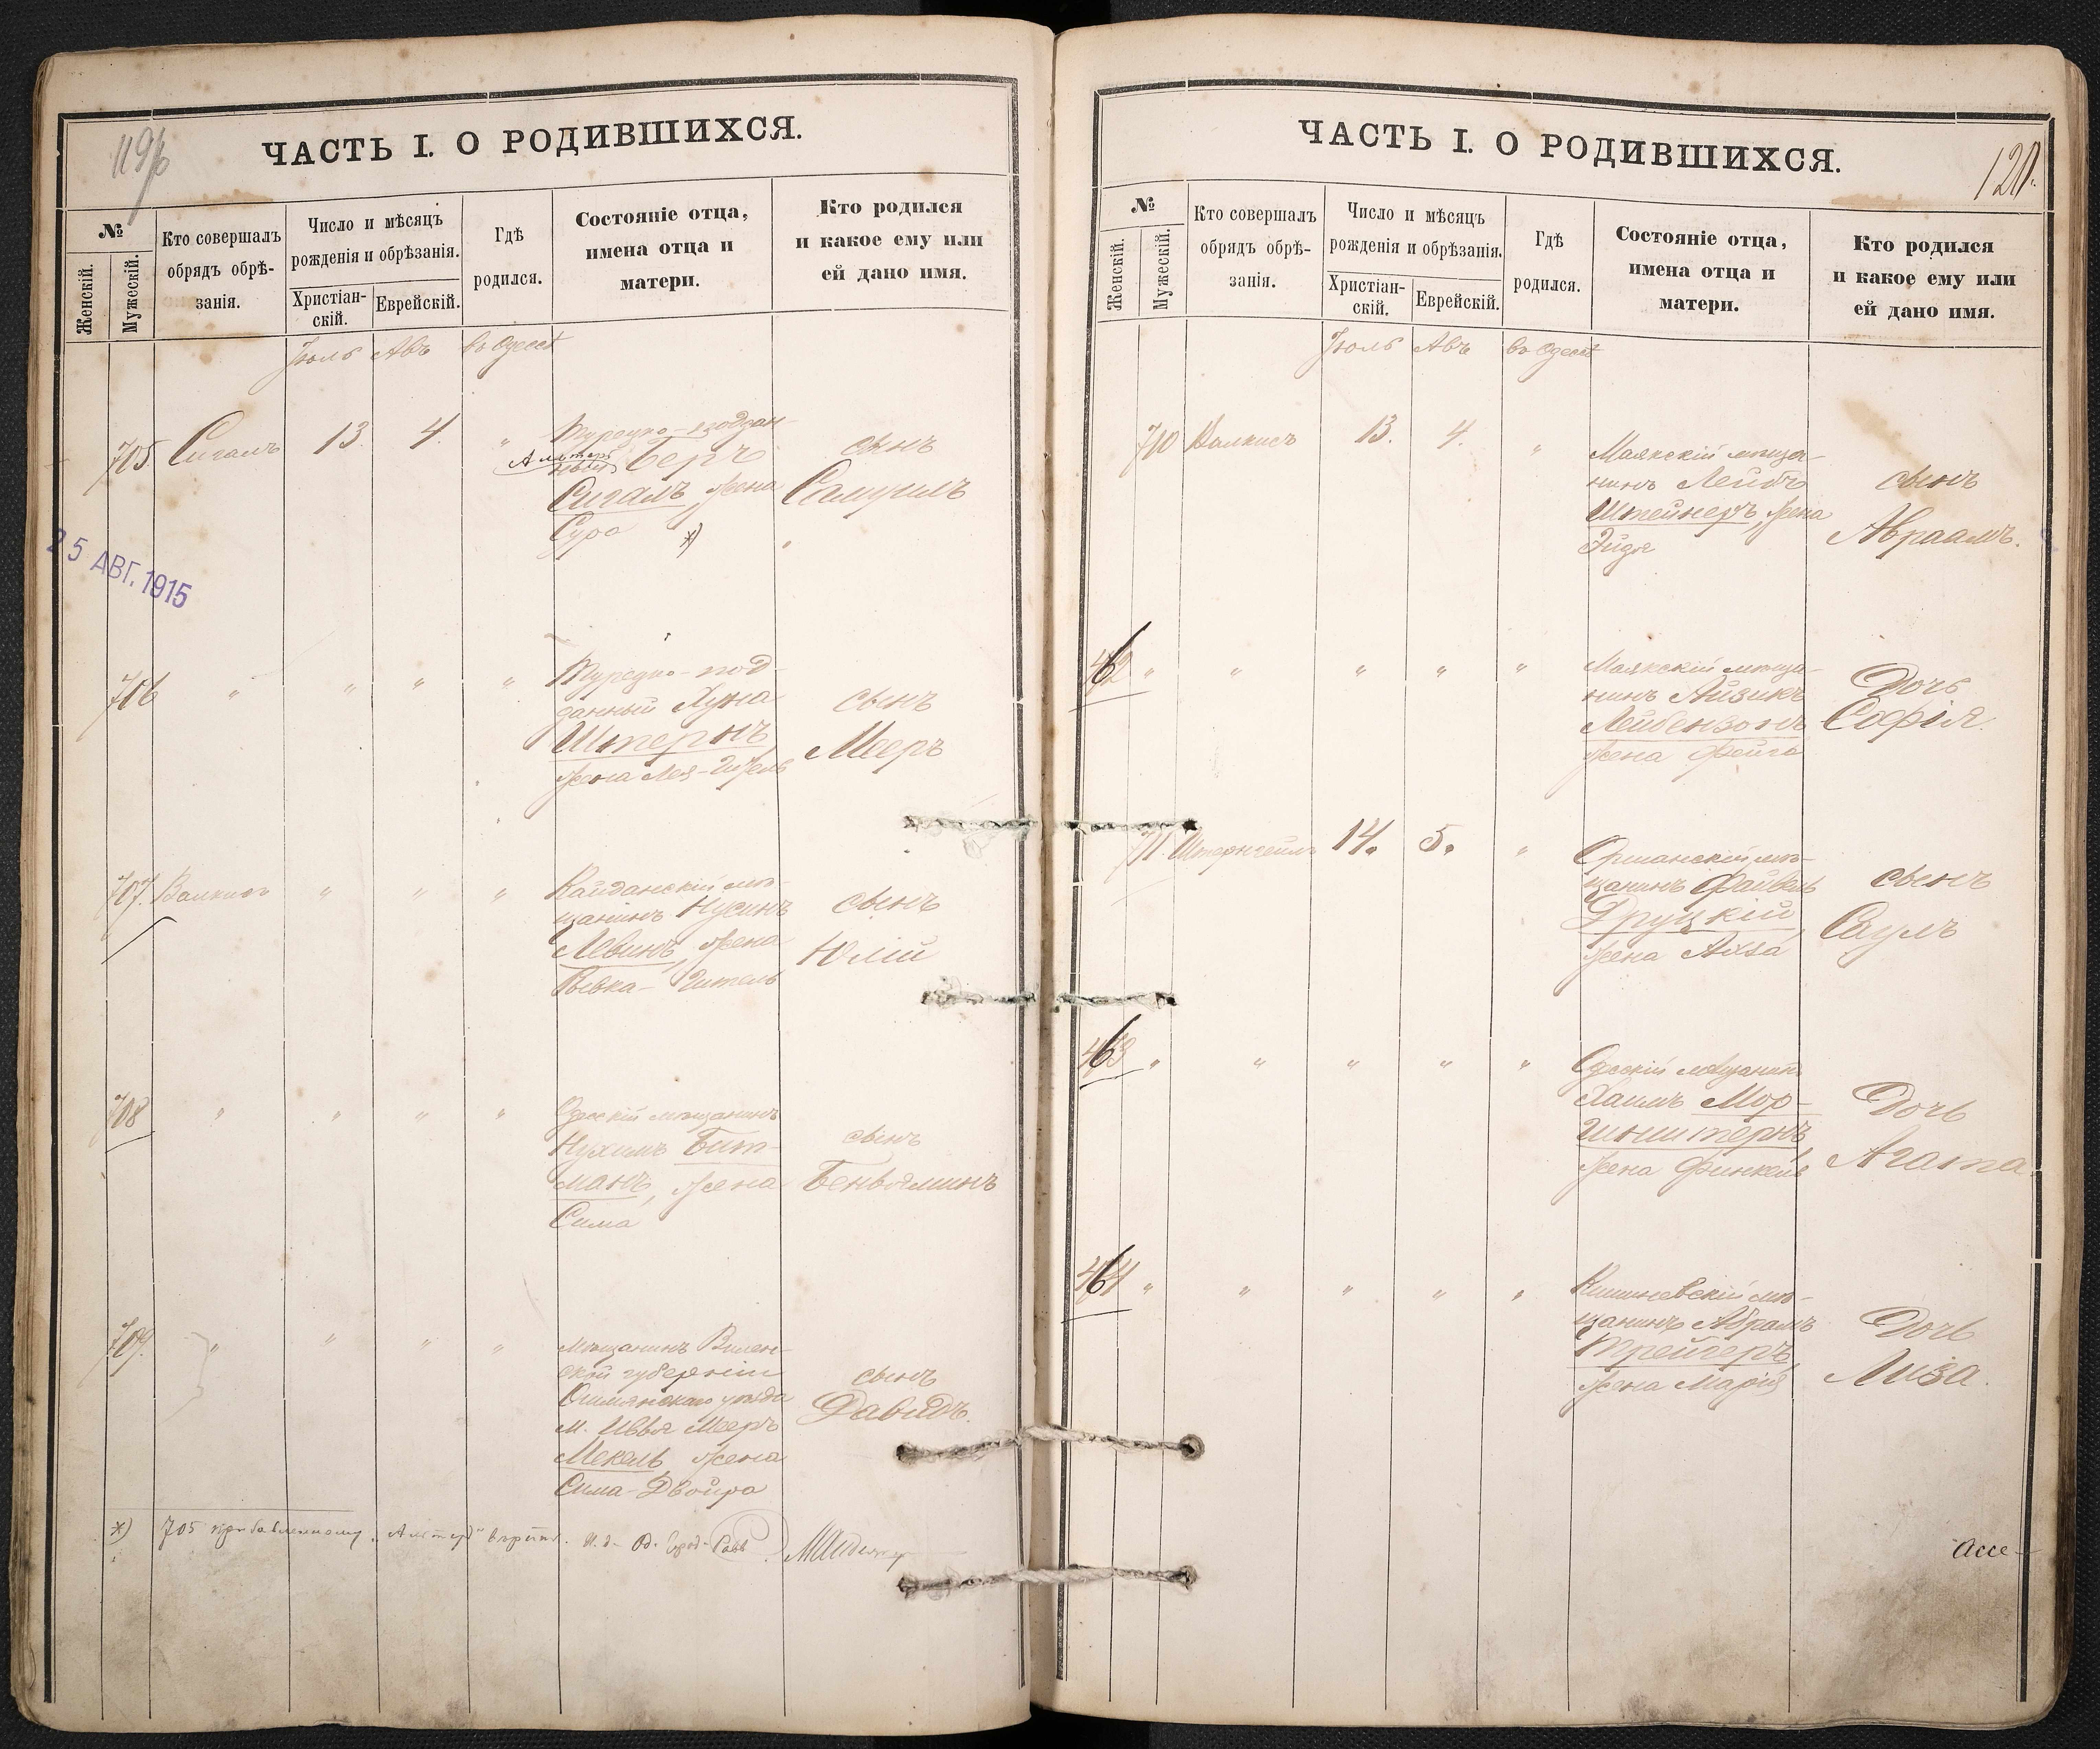 119
ЧАСТЬ I. О РОДИВШИХСЯ.
№
Женскій.
Мужескій.
Кто совершалъ
обрядъ обрѣ-
занія.
Число и мѣсяцъ
рожденія и обрѣзанія.
Христіан-
скій.
Еврейскій.
Гдѣ
родился.
Состояніе отца,
имена отца и
матери.
Кто родился
и какое ему или
ей дано имя.
Іюль Авъ въ Одессѣ
705 Сигалъ 13. 4. "
Турецко-поддан-
Альтеръ
ный Беръ
Сигалъ, жена
Сура *)
сынъ
Самуилъ
25 АВГ. 1915
706 " " " "
Турецко-под-
данный Хуна
Штернъ
жена Лея-
сынъ
Мееръ
707. " " "
Кайданскій мѣ-
щанинъ Нусинъ
Левинъ, жена
Ривка-Гитель
сынъ
Юлій
708 " " " "
Одесскій мѣщанинъ
Нухимъ Бит-
манъ, жена
Сима
сынъ
Беньяминъ
709. " " " "
Мѣщанинъ Вилен-
ской губерніи
Ошмянскаго уѣзда
м. Ивья Мееръ
Мекель жена
Сима-Двойра
сынъ
Давидъ.
*) 705 прибавленному "Альтеръ" вѣрить. И. д. Од. Город. Равв.
ЧАСТЬ I. О РОДИВШИХСЯ.
120.
№
Женскій.
Мужескій.
Кто совершалъ
обрядъ обрѣ-
занія.
Число и мѣсяцъ
рожденія и обрѣзанія.
Христіан-
скій.
Еврейскій.
Гдѣ
родился.
Состояніе отца,
имена отца и
матери.
Кто родился
и какое ему или
ей дано имя.
Іюль Авъ въ Одессѣ
710 13. 4. "
Маякскій мѣща-
нинъ Лейбъ
Штейнеръ, жена
Эйдя
сынъ
Авраамъ.
462 " " " " "
Маякскій мѣща-
нинъ Айзикъ
Лейбензонъ
жена Фейга
Дочь
Софія.
711 14. 5. "
Оршанскій мѣ-
щанинъ Файвель
Друцкій,
жена
сынъ
Саулъ
463 " " " " "
Одесскій мѣщанинъ
Хаимъ Мор-
генштернъ,
жена Финкель
Дочь
Агата
464 " " " " "
Кишиневскій мѣ-
щанинъ Абрамъ
Трейгеръ,
жена Марія
Дочь
Лиза.
Ассе-